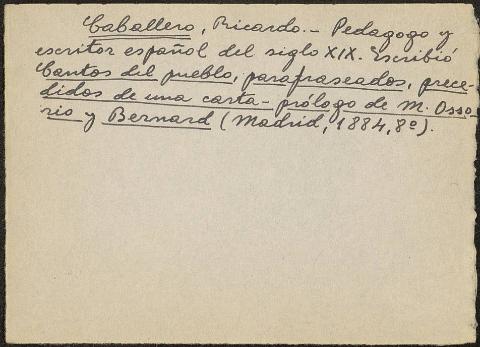 Caballero, Ricardo.- Pedagogo y
escritor español del siglo XIX. Escribió
Cantos del pueblo, parafraseados, prece-
didos de una carta-prólogo de M. Osso-
rio y Bernard (Madrid, 1884, 8º).